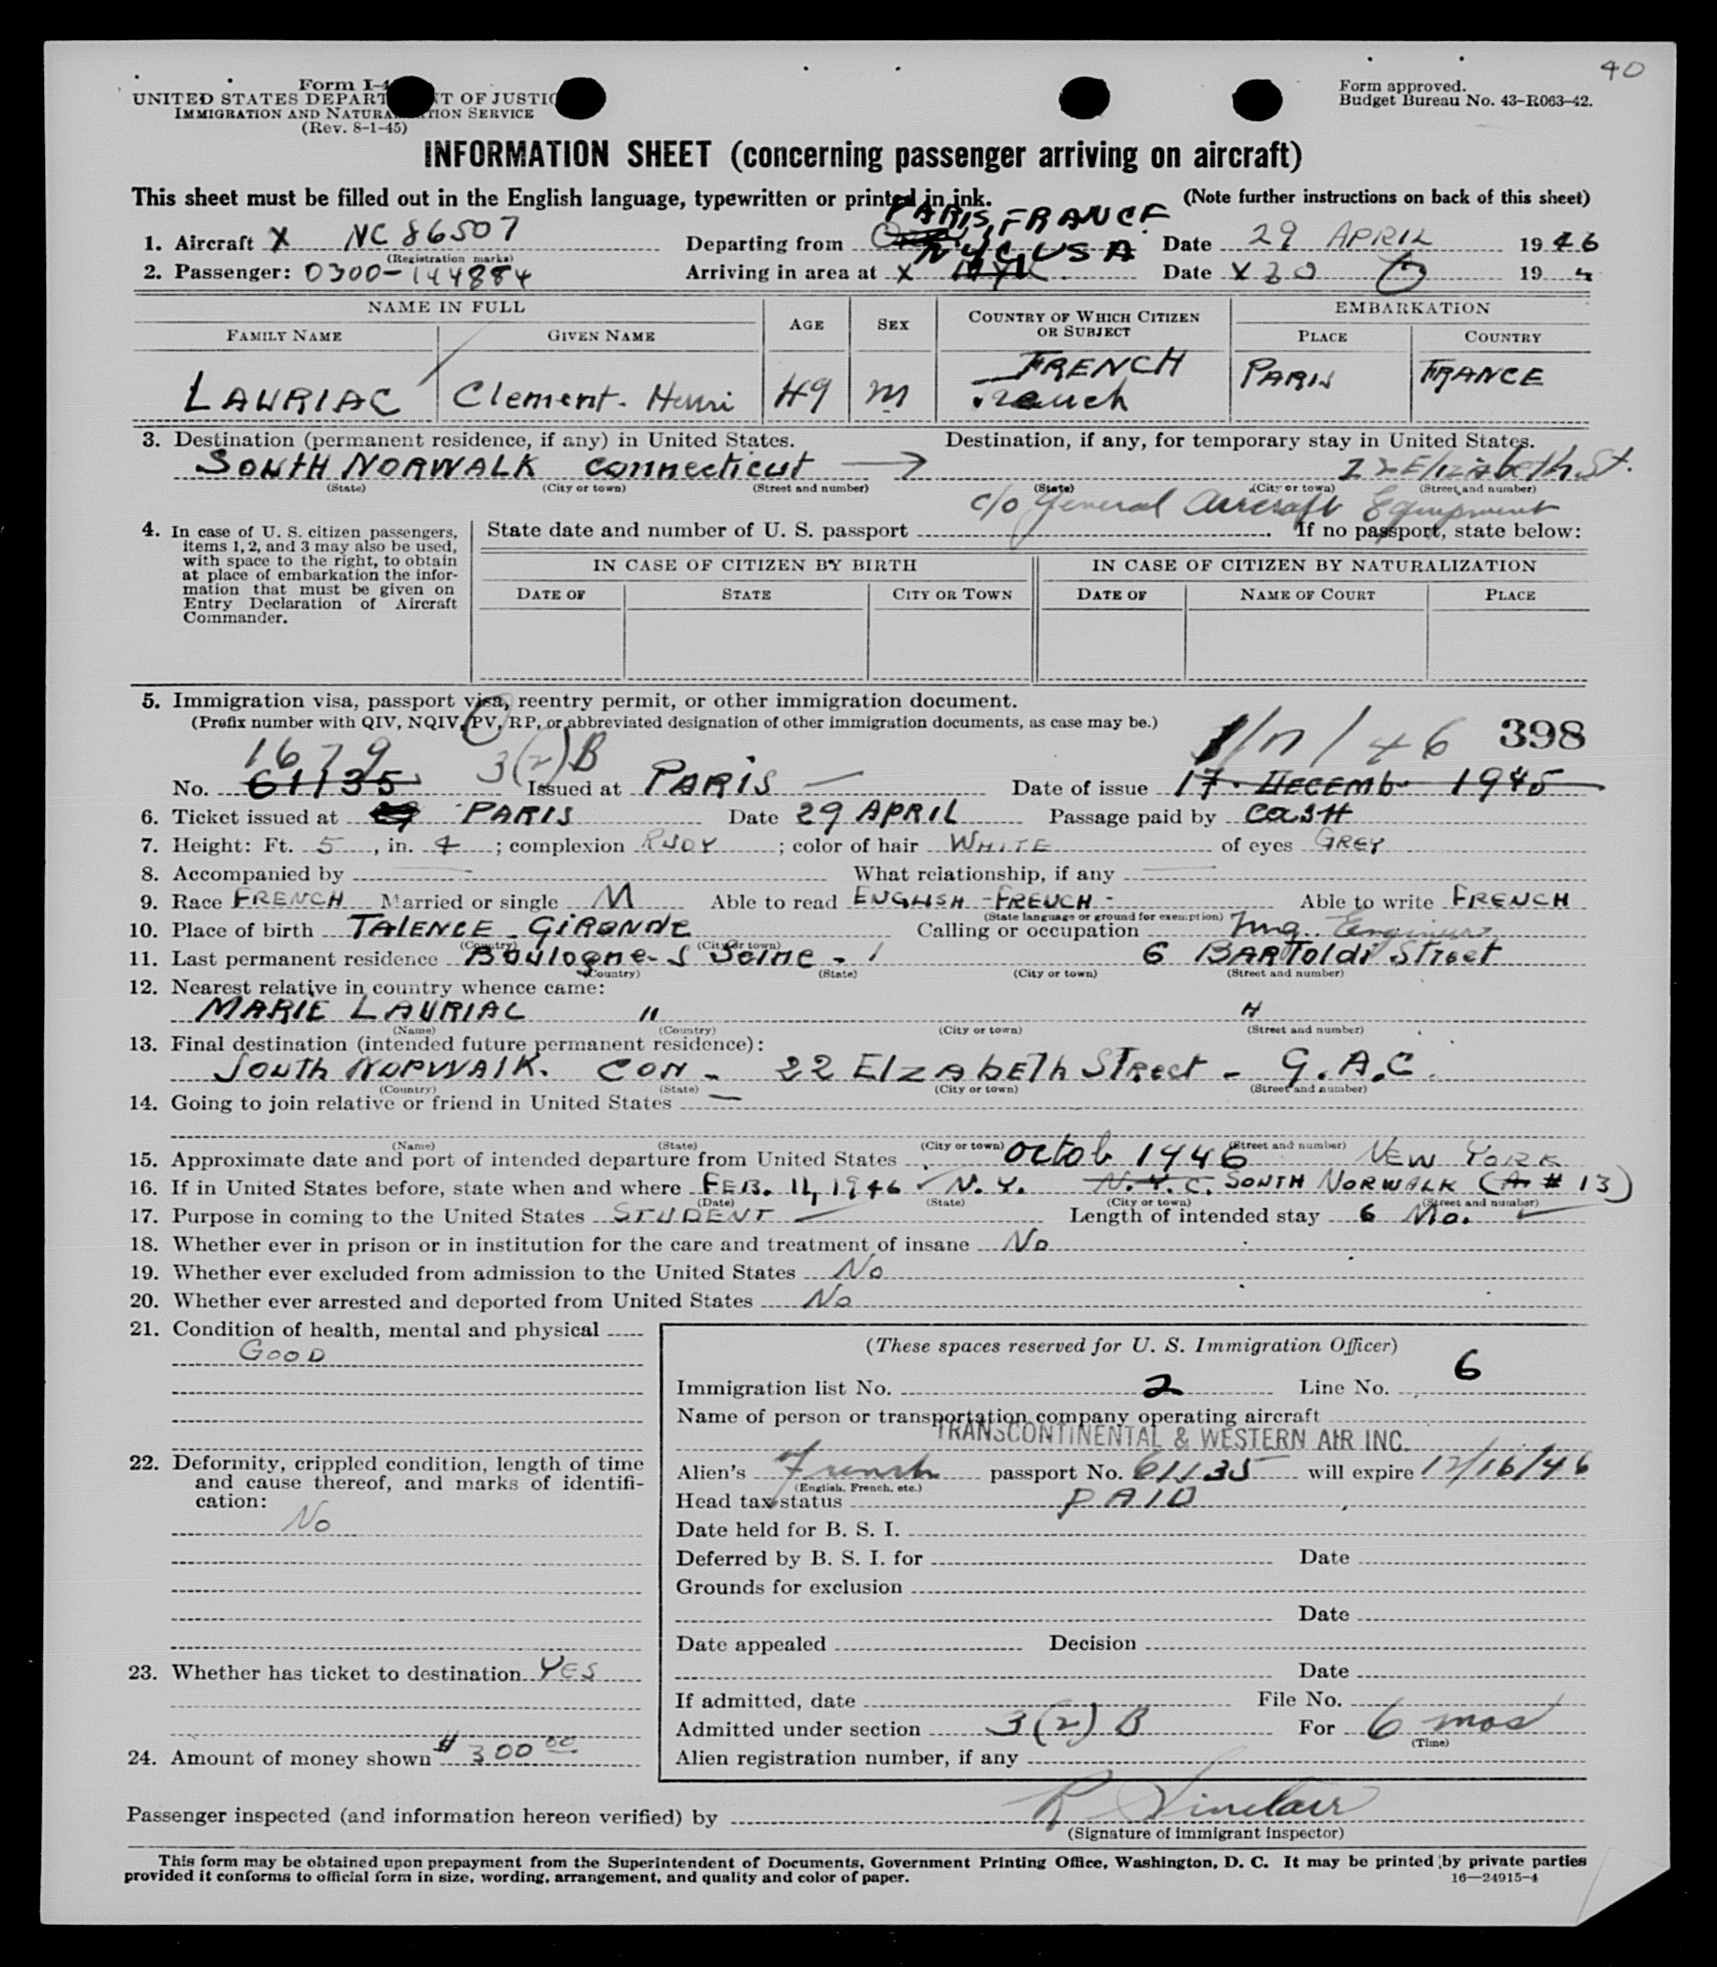 40
Form I-4
UNITED STATES DEPART T OF JUSTIC
IMMIGRATION AND NATURA TION SERVICE
(Rev. 8-1-45)
Form approved.
Budget Bureau No. 43-R063-42.
INFORMATION SHEET (concerning passenger arriving on aircraft)
This sheet must be filled out in the English language, typewritten or printed in ink. (Note further instructions on back of this sheet)
1. Aircraft X NC 86507 Departing from PARIS, FRANCE Date 29 APRIL 1946
(Registration marks)
2. Passenger: 0300-144884 Arriving in area at X NYC USA Date X 30 19 4
NAME IN FULL AGE SEX COUNTRY OF WHICH CITIZEN OR SUBJECT EMBARKATION
FAMILY NAME GIVEN NAME PLACE COUNTRY
LAURIAC Clement-Henri 49 M FRENCH French PARIS FRANCE
3. Destination (permanent residence, if any) in United States. Destination, if any, for temporary stay in United States.
SOUTH NORWALK connecticut 22 Elizabeth St.
(State) (City or town) (Street and number) (State) (City or town) (Street and number)
c/o General Aircraft Equipment
4. In case of U. S. citizen passengers, items 1, 2, and 3 may also be used, with space to the right, to obtain at place of embarkation the information that must be given on Entry Declaration of Aircraft Commander.
State date and number of U. S. passport . If no passport, state below:
IN CASE OF CITIZEN BY BIRTH IN CASE OF CITIZEN BY NATURALIZATION
DATE OF STATE CITY OR TOWN DATE OF NAME OF COURT PLACE
5. Immigration visa, passport visa, reentry permit, or other immigration document.
(Prefix number with QIV, NQIV, PV, RP, or abbreviated designation of other immigration documents, as case may be.)
1679 3(2)B 1/17/46 398
No. 61135 Issued at PARIS Date of issue 17 DECEMb 1945
6. Ticket issued at PARIS Date 29 APRIL Passage paid by CASH
7. Height: Ft. 5, in. 4; complexion RUDY; color of hair WHITE of eyes GREY
8. Accompanied by — What relationship, if any —
9. Race FRENCH Married or single M Able to read ENGLISH - FRENCH - Able to write FRENCH
(State language or ground for exemption)
10. Place of birth TALENCE - GIRONDE Calling or occupation Ing. Engineer
(Country) (City or town)
11. Last permanent residence Boulogne S Seine - 6 BARTOLDI Street
(Country) (State) (City or town) (Street and number)
12. Nearest relative in country whence came:
MARIE LAURIAC " "
(Name) (Country) (City or town) (Street and number)
13. Final destination (intended future permanent residence):
SOUTH NORWALK. CON - 22 ElzAbETh STReet - G.A.C.
(Country) (State) (City or town) (Street and number)
14. Going to join relative or friend in United States —
(Name) (State) (City or town) (Street and number)
15. Approximate date and port of intended departure from United States Octob 1946 NEW YORK
16. If in United States before, state when and where FEB. 11, 1946 N.Y. N.Y.C. SOUTH NORWALK (A # 13)
(Date) (State) (City or town) (Street and number)
17. Purpose in coming to the United States STUDENT Length of intended stay 6 Mo.
18. Whether ever in prison or in institution for the care and treatment of insane No
19. Whether ever excluded from admission to the United States No
20. Whether ever arrested and deported from United States No
21. Condition of health, mental and physical
GOOD
22. Deformity, crippled condition, length of time and cause thereof, and marks of identification:
No
23. Whether has ticket to destination YES
24. Amount of money shown $300 00
(These spaces reserved for U. S. Immigration Officer)
Immigration list No. 2 Line No. 6
Name of person or transportation company operating aircraft
TRANSCONTINENTAL & WESTERN AIR INC.
Alien's French passport No. 61135 will expire 12/16/46
(English, French, etc.)
Head tax status PAID
Date held for B. S. I.
Deferred by B. S. I. for Date
Grounds for exclusion
Date
Date appealed Decision
Date
If admitted, date File No.
Admitted under section 3(2) B For 6 mos
(Time)
Alien registration number, if any
Passenger inspected (and information hereon verified) by R Sinclair
(Signature of immigrant inspector)
This form may be obtained upon prepayment from the Superintendent of Documents, Government Printing Office, Washington, D. C. It may be printed by private parties
provided it conforms to official form in size, wording, arrangement, and quality and color of paper. 16—24915-4